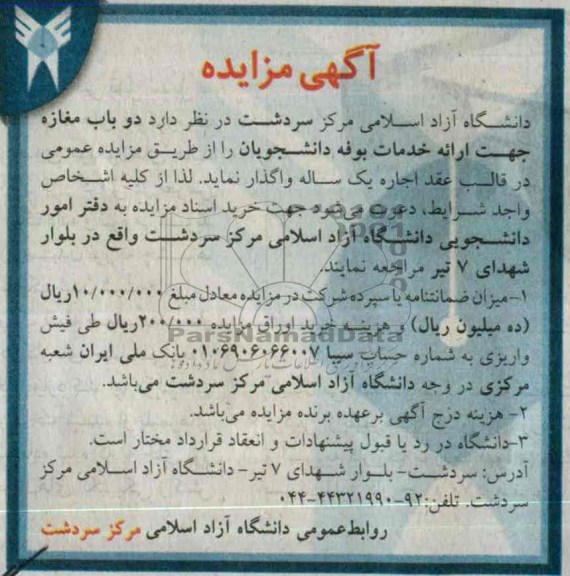 آگهی مزایده
دانشگاه آزاد اسلامی مرکز سردشت در نظر دارد دو باب مغازه
جهت ارائه خدمات بوفه دانشجویان را از طریق مزایده عمومی
در قالب عقد اجاره یک ساله واگذار نماید. لذا از کلیه اشخاص
واجد شرایط، دعوت می‌شود جهت خرید اسناد مزایده به دفتر امور
دانشجویی دانشگاه آزاد اسلامی مرکز سردشت واقع در بلوار
شهدای ۷ تیر مراجعه نمایند.
۱-میزان ضمانتنامه یا سپرده شرکت در مزایده معادل مبلغ ۱۰/۰۰۰/۰۰۰ریال
(ده میلیون ریال) و هزینه خرید اوراق مزایده ۲۰۰/۰۰۰ریال طی فیش
ParsNamadData
واریزی به شماره حساب سیبا ۰۱۰۶۹۰۶۰۶۶۰۰۷ بانک ملی ایران شعبه
مرکزی در وجه دانشگاه آزاد اسلامی مرکز سردشت می‌باشد.
۲- هزینه درج آگهی برعهده برنده مزایده می‌باشد.
۳-دانشگاه در رد یا قبول پیشنهادات و انعقاد قرارداد مختار است.
آدرس: سردشت- بلوار شهدای ۷ تیر- دانشگاه آزاد اسلامی مرکز
سردشت. تلفن:۹۲-۴۴۳۲۱۹۹۰-۰۴۴
روابط‌عمومی دانشگاه آزاد اسلامی مرکز سردشت